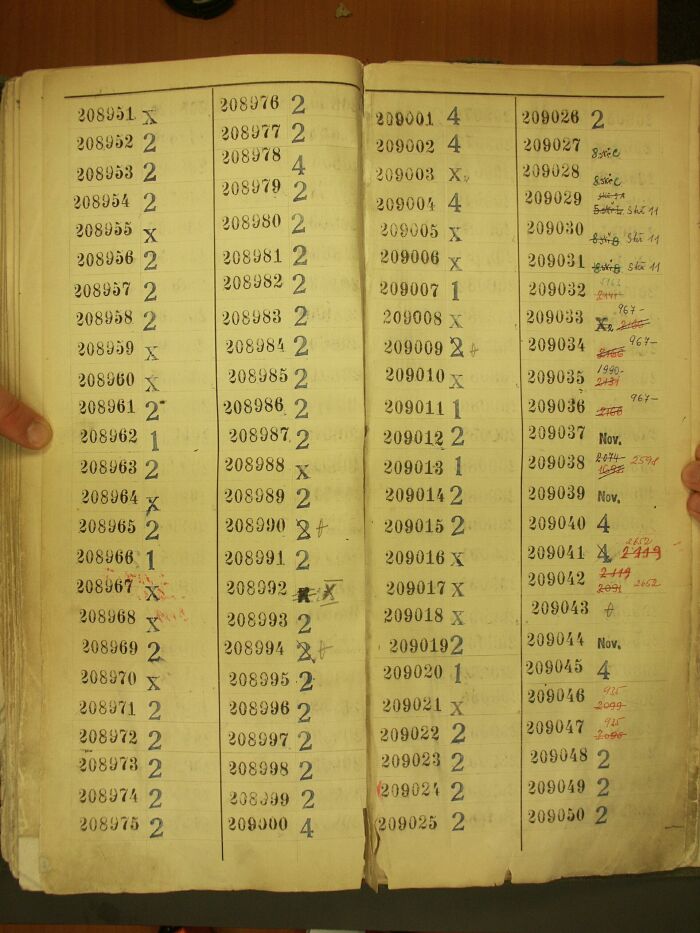 208951 x
208952 2
208953 2
208954 2
208955 x
208956 2
208957 2
208958 2
208959 x
208960 x
208961 2
208962 1
208963 2
208964 x
208965 2
208966 1
208967 x
208968 x
208969 2
208970 x
208971 2
208972 2
208973 2
208974 2
208975 2
208976 2
208977 2
208978 4
208979 2
208980 2
208981 2
208982 2
208983 2
208984 2
208985 2
208986 2
208987 2
208988 x
208989 2
208990 2 +
208991 2
208992 x x
208993 2
208994 2 +
208995 2
208996 2
208997 2
208998 2
208999 2
209000 4
209001 4
209002 4
209003 x
209004 4
209005 x
209006 x
209007 1
209008 x
209009 2 +
209010 x
209011 1
209012 2
209013 1
209014 2
209015 2
209016 x
209017 x
209018 x
209019 2
209020 1
209021 x
209022 2
209023 2
209024 2
209025 2
209026 2
209027
209028
209029 11
209030 11
209031 11
209032
209033 x 2166 967-
209034 2166 967-
209035 1990- 2131
209036 2166 967-
209037 Nov.
209038 2074 2598
209039 Nov.
209040 4
209041 4 2119 2652
209042 2119 2091 2652
209043 +
209044 Nov.
209045 4
209046 935 2099
209047 935 2096
209048 2
209049 2
209050 2